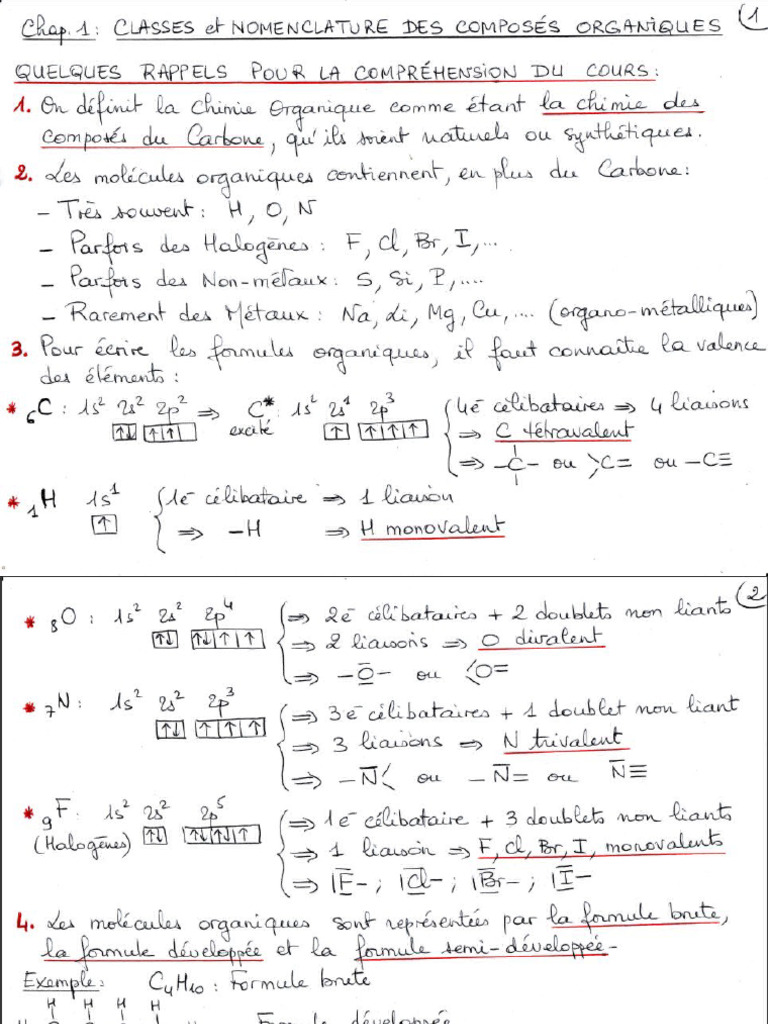 1
Chap. 1 : CLASSES et NOMENCLATURE DES COMPOSÉS ORGANIQUES
QUELQUES RAPPELS POUR LA COMPRÉHENSION DU COURS :
1. On définit la Chimie Organique comme étant la chimie des
composés du Carbone, qu'ils soient naturels ou synthétiques.
2. Les molécules organiques contiennent, en plus du Carbone :
- Très souvent : H, O, N
- Parfois des Halogènes : F, Cl, Br, I, ...
- Parfois des Non-métaux : S, Si, P, ....
- Rarement des Métaux : Na, Li, Mg, Cu, .... (organo-métalliques)
3. Pour écrire les formules organiques, il faut connaître la valence
des éléments :
* ₆C : 1s² 2s² 2p² ⇒ C* : 1s² 2s¹ 2p³ { 4e⁻ célibataires ⇒ 4 liaisons
excité ⇒ C tétravalent
⇒ -C- ou >C= ou -C≡
* ₁H 1s¹ { 1e⁻ célibataire ⇒ 1 liaison
⇒ -H ⇒ H monovalent
2
* ₈O : 1s² 2s² 2p⁴ { ⇒ 2e⁻ célibataires + 2 doublets non liants
⇒ 2 liaisons ⇒ O divalent
⇒ -O- ou O=
* ₇N : 1s² 2s² 2p³ { ⇒ 3e⁻ célibataires + 1 doublet non liant
⇒ 3 liaisons ⇒ N trivalent
⇒ -N< ou -N= ou N≡
* ₉F : 1s² 2s² 2p⁵ { ⇒ 1e⁻ célibataire + 3 doublets non liants
(Halogènes) ⇒ 1 liaison ⇒ F, Cl, Br, I, monovalents
⇒ |F- ; |Cl- ; |Br- ; |I-
4. Les molécules organiques sont représentées par la formule brute,
la formule développée et la formule semi-développée-
Exemple : C₄H₁₀ : Formule brute
H H H H
développée